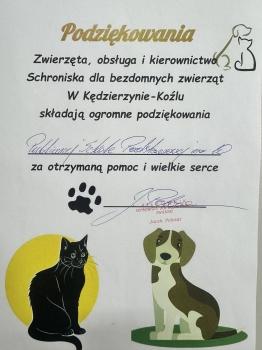 Podziękowania
Zwierzęta, obsługa i kierownictwo
Schroniska dla bezdomnych zwierząt
W Kędzierzynie-Koźlu
składają ogromne podziękowania
Publicznej Szkole Podstawowej nr 10
za otrzymaną pomoc i wielkie serce